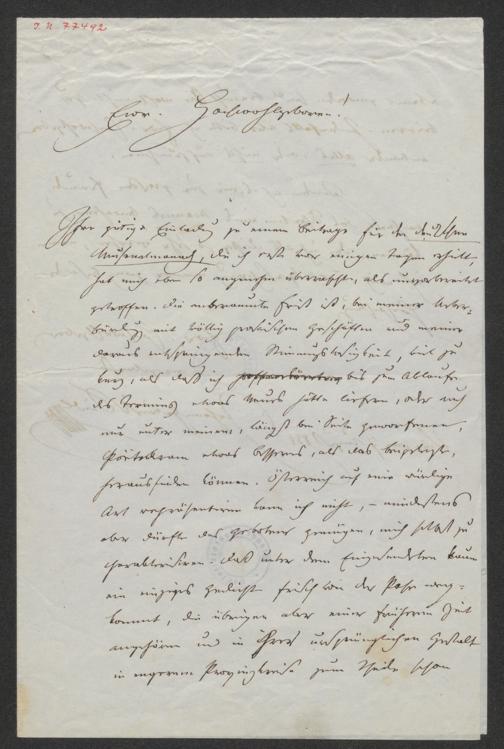 I. N. 77492
Euer Hochwohlgeboren!
Ihre gütige Einladung zu einem Beitrage für den deutschen
Musenalmanach, die ich erst vor einigen Tagen erhielt,
hat mich eben so angenehm überrascht, als unvorbereitet
getroffen. Die anberaumte Frist ist, bei meiner Über-
bürdung mit völlig prosaischen Geschäften und meiner
daraus entspringenden Stimmungslosigkeit, viel zu
kurz, als daß ich bis zum Ablaufe
des Termins etwas Neues hätte liefern, oder auch
nur unter meinem, längst bei Seite geworfenen,
etwas besseres, als das beigelegte,
herausfinden können. Österreich auf eine würdige
Art repräsentieren kann ich nicht, – mindestens
aber dürfte das Gebotene genügen, mich selbst zu
charakterisiren. Daß unter dem Eingesendeten kaum
ein einziges Gedicht frisch von der weg-
kommt, die übrigen aber einer früheren Zeit
angehören und in ihrer ursprünglichen Gestalt
in engerem Provinzkreise zum Theile schon